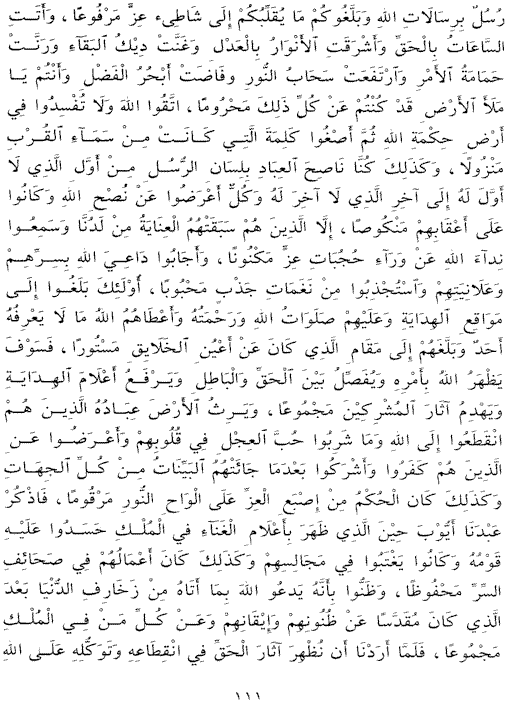 رُسُلٌ بِرِسَالَاتِ اللهِ وَبَلَّغُوكُمْ مَا يُقَلِّبُكُمْ إِلَى شَاطِىءِ عِزٍّ مَرْفُوعًا، وَأَتَتِ
السَّاعَاتُ بِالْحَقِّ وَأَشْرَقَتِ الْأَنْوَارُ بِالْعَدْلِ وَغَنَّتْ دِيْكُ الْبَقَآءِ وَرَنَّتْ
حَمَامَةُ الْأَمْرِ وَارْتَفَعَتْ سَحَابُ النُّورِ وَفَاضَتْ أَبْحُرُ الْفَضْلِ وَأَنْتُمْ يَا
مَلَأَ الْأَرْضِ قَدْ كُنْتُمْ عَنْ كُلِّ ذَلِكَ مَحْرُومًا، اتَّقُوا اللهَ وَلَا تُفْسِدُوا فِي
أَرْضِ حِكْمَةِ اللهِ ثُمَّ أَصْغُوا كَلِمَةَ الَّتِي كَانَتْ مِنْ سَمَآءِ الْقُرْبِ
مَنْزُولًا، وَكَذَلِكَ كُنَّا نَاصِحَ الْعِبَادِ بِلِسَانِ الرُّسُلِ مِنْ أَوَّلِ الَّذِي لَا
أَوَّلَ لَهُ إِلَى آخِرِ الَّذِي لَا آخِرَ لَهُ وَكُلٌّ أَعْرَضُوا عَنْ نُصْحِ اللهِ وَكَانُوا
عَلَى أَعْقَابِهِمْ مَنْكُوصًا، إِلَّا الَّذِينَ هُمْ سَبَقَتْهُمُ الْعِنَايَةُ مِنْ لَدُنَّا وَسَمِعُوا
نِدَآءَ اللهِ عَنْ وَرَآءِ حُجُبَاتِ عِزٍّ مَكْنُونًا، وَأَجَابُوا دَاعِيَ اللهِ بِسِرِّهِمْ
وَعَلَانِيَتِهِمْ وَاسْتُجْذِبُوا مِنْ نَغَمَاتِ جَذْبٍ مَحْبُوبًا، أُوْلَئِكَ بَلَغُوا إِلَى
مَوَاقِعِ الْهِدَايَةِ وَعَلَيْهِمْ صَلَوَاتُ اللهِ وَرَحْمَتُهُ وَأَعْطَاهُمُ اللهُ مَا لَا يَعْرِفُهُ
أَحَدٌ وَبَلَّغَهُمْ إِلَى مَقَامِ الَّذِي كَانَ عَنْ أَعْيُنِ الْخَلَايِقِ مَسْتُورًا، فَسَوْفَ
يَظْهَرُ اللهُ بِأَمْرِهِ وَيُفَصِّلُ بَيْنَ الْحَقِّ وَالْبَاطِلِ وَيَرْفَعُ أَعْلَامَ الْهِدَايَةِ
وَيَهْدِمُ آثَارَ الْمُشْرِكِيْنَ مَجْمُوعًا، وَيَرِثُ الْأَرْضَ عِبَادُهُ الَّذِينَ هُمْ
انْقَطَعُوا إِلَى اللهِ وَمَا شَرِبُوا حُبَّ الْعِجْلِ فِي قُلُوبِهِمْ وَأَعْرَضُوا عَنِ
الَّذِينَ هُمْ كَفَرُوا وَأَشْرَكُوا بَعْدَمَا جَائَتْهُمُ الْبَيِّنَاتُ مِنْ كُلِّ الْجِهَاتِ
وَكَذَلِكَ كَانَ الْحُكْمُ مِنْ إِصْبَعِ الْعِزِّ عَلَى الْوَاحِ النُّورِ مَرْقُومًا، فَاذْكُرْ
عَبْدَنَا أَيُّوبَ حِيْنَ الَّذِي ظَهَرَ بِأَعْلَامِ الْغَنَآءِ فِي الْمُلْكِ حَسَدُوا عَلَيْهِ
قَوْمُهُ وَكَانُوا يَغْتَبُوا فِي مَجَالِسِهِمْ وَكَذَلِكَ كَانَ أَعْمَالُهُمْ فِي صَحَائِفِ
السِّرِّ مَحْفُوظًا، وَظَنُّوا بِأَنَّهُ يَدعُو اللهَ بِمَا أَتَاهُ مِنْ زَخَارِفِ الدُّنْيَا بَعْدَ
الَّذِي كَانَ مُقَدَّسًا عَنْ ظُنُونِهِمْ وَإِيْقَانِهِمْ وَعَنْ كُلِّ مَنْ فِي الْمُلْكِ
مَجْمُوعًا، فَلَمَّا أَرَدْنَا أَن نُظْهِرَ آثَارَ الْحَقِّ فِي انْقِطَاعِهِ وَتَوَكُّلِهِ عَلَى اللهِ
١١١